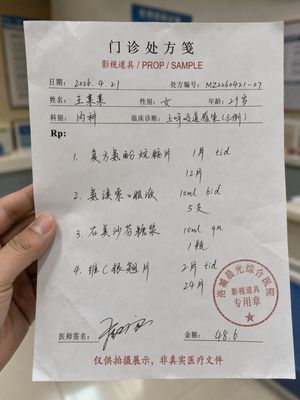 门诊处方笺
影视道具 / PROP / SAMPLE
日期: 2026.4.21 处方编号: MZ2260421-07
姓名: 王某某 性别: 女 年龄: 29岁
科别: 内科 临床诊断: 上呼吸道感染(示例)
Rp:
1. 复方氨酚烷胺片 1片 tid
12片
2. 氨溴索口服液 10ml bid
5支
3. 右美沙芬糖浆 10ml qn
1瓶
4. 维C银翘片 2片 tid
24片
洛城晨光综合医院
影视道具
专用章
医师签名: 金额: 48.6
仅供拍摄展示,非真实医疗文件